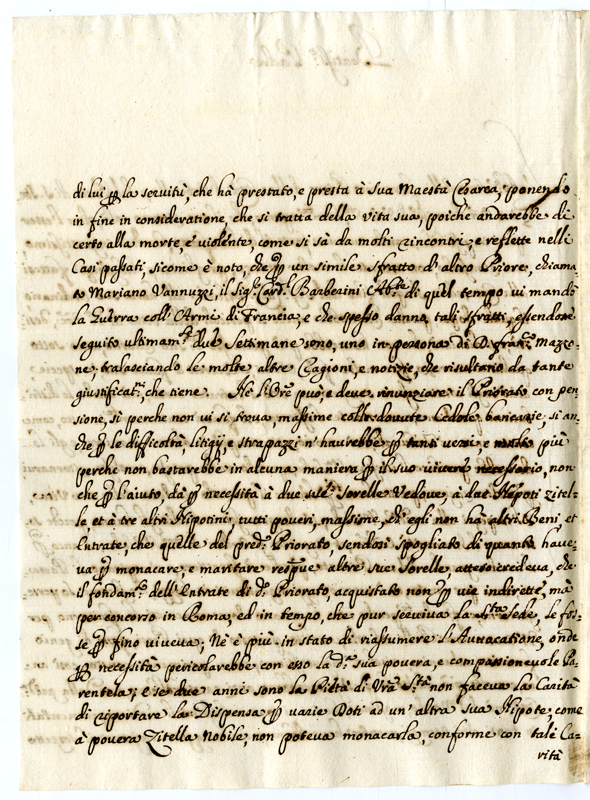 di lui p la servitù, che hà prestato, e presta à Sua Maestà Cesarea, ponendo
in fine in consideratione, che si tratta della vita sua, poiche andarebbe di
certo alla morte, e violente, come si sà da molti rincontri; e reflette nelli
Casi passati, sicome è noto, che p un simile sfratto d'altro Priore, chiama-
to Mariano Vannuzzi, il Sig.r Card.l Barberini Abb.te di quel tempo vi mandò
la Guerra coll'Armi di Francia; e che spesso danno tali sfratti, essendone
seguito ultimam.te due Settimane sono, uno in persona di D. Fran.co Mazzo-
ne; tralasciando le molte altre Cagioni, e notizie, che risultano da tante
giustificat.ni che tiene. Nè libre può, e deve rinunziare il Priorato con pen-
sione, si perche non vi si trova, massime colle dovute Cedole bancarie, si an-
che p le difficoltà, litigij, e strapazzi n'haurebbe p tanti versi e molto più
perche non bastarebbe in alcuna maniera p il suo vivere necessario, non
che p l'aiuto, dà p necessità à due Sorelle Vedove, à Nepoti zitel-
le, et à tre altri Nipotini, tutti poveri, massime, ch'egli non hà altri Beni, et
Entrate, che quelle del pred.o Priorato, sendosi spogliato di quanto haue-
va p monacare, e maritare altre sue Sorelle, atteso credeva, che
il fondam.to dell'Entrate di d.o Priorato, acquistato non p vie indirette, mà
per concorso in Roma, ed in tempo, che pur serviva la S.ta Sede, le fos-
se p fino viveva; Nè è più in stato di riassumere l'Auuocatione, onde
p necessità pericolarebbe con esso la d.a sua povera, e compassioneuole Pa-
rentela; e se due anni sono la Pietà di Vrã S.tà non faceva la Carità
di riportare la Dispensa p varie Doti ad un'altra sua Nipote, come
à povera Zitella Nobile, non poteva monacarla, conforme con tale Ca-
rità